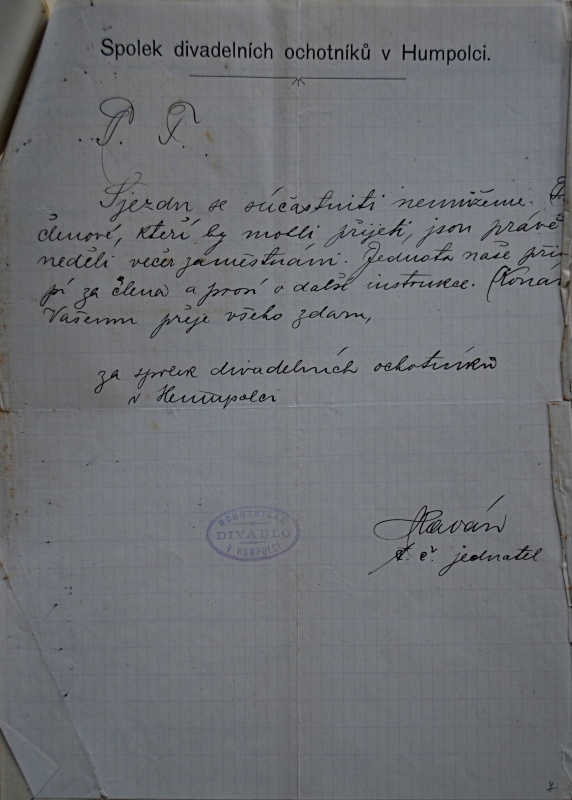 Spolek divadelních ochotníků v Humpolci.
P. T.
Sjezdu se súčastniti nemůžeme.
členové, kteří by mohli přijeti, jsou právě
neděli večer zaměstnáni. Jednota naše při-
pí za člena a prosí o další instrukce. (Konán
Vašemu přeje všeho zdaru,
za spolek divadelních ochotníků
v Humpolci
OCHOTNICKÉ
DIVADLO
V HUMPOLCI
t. č. jednatel